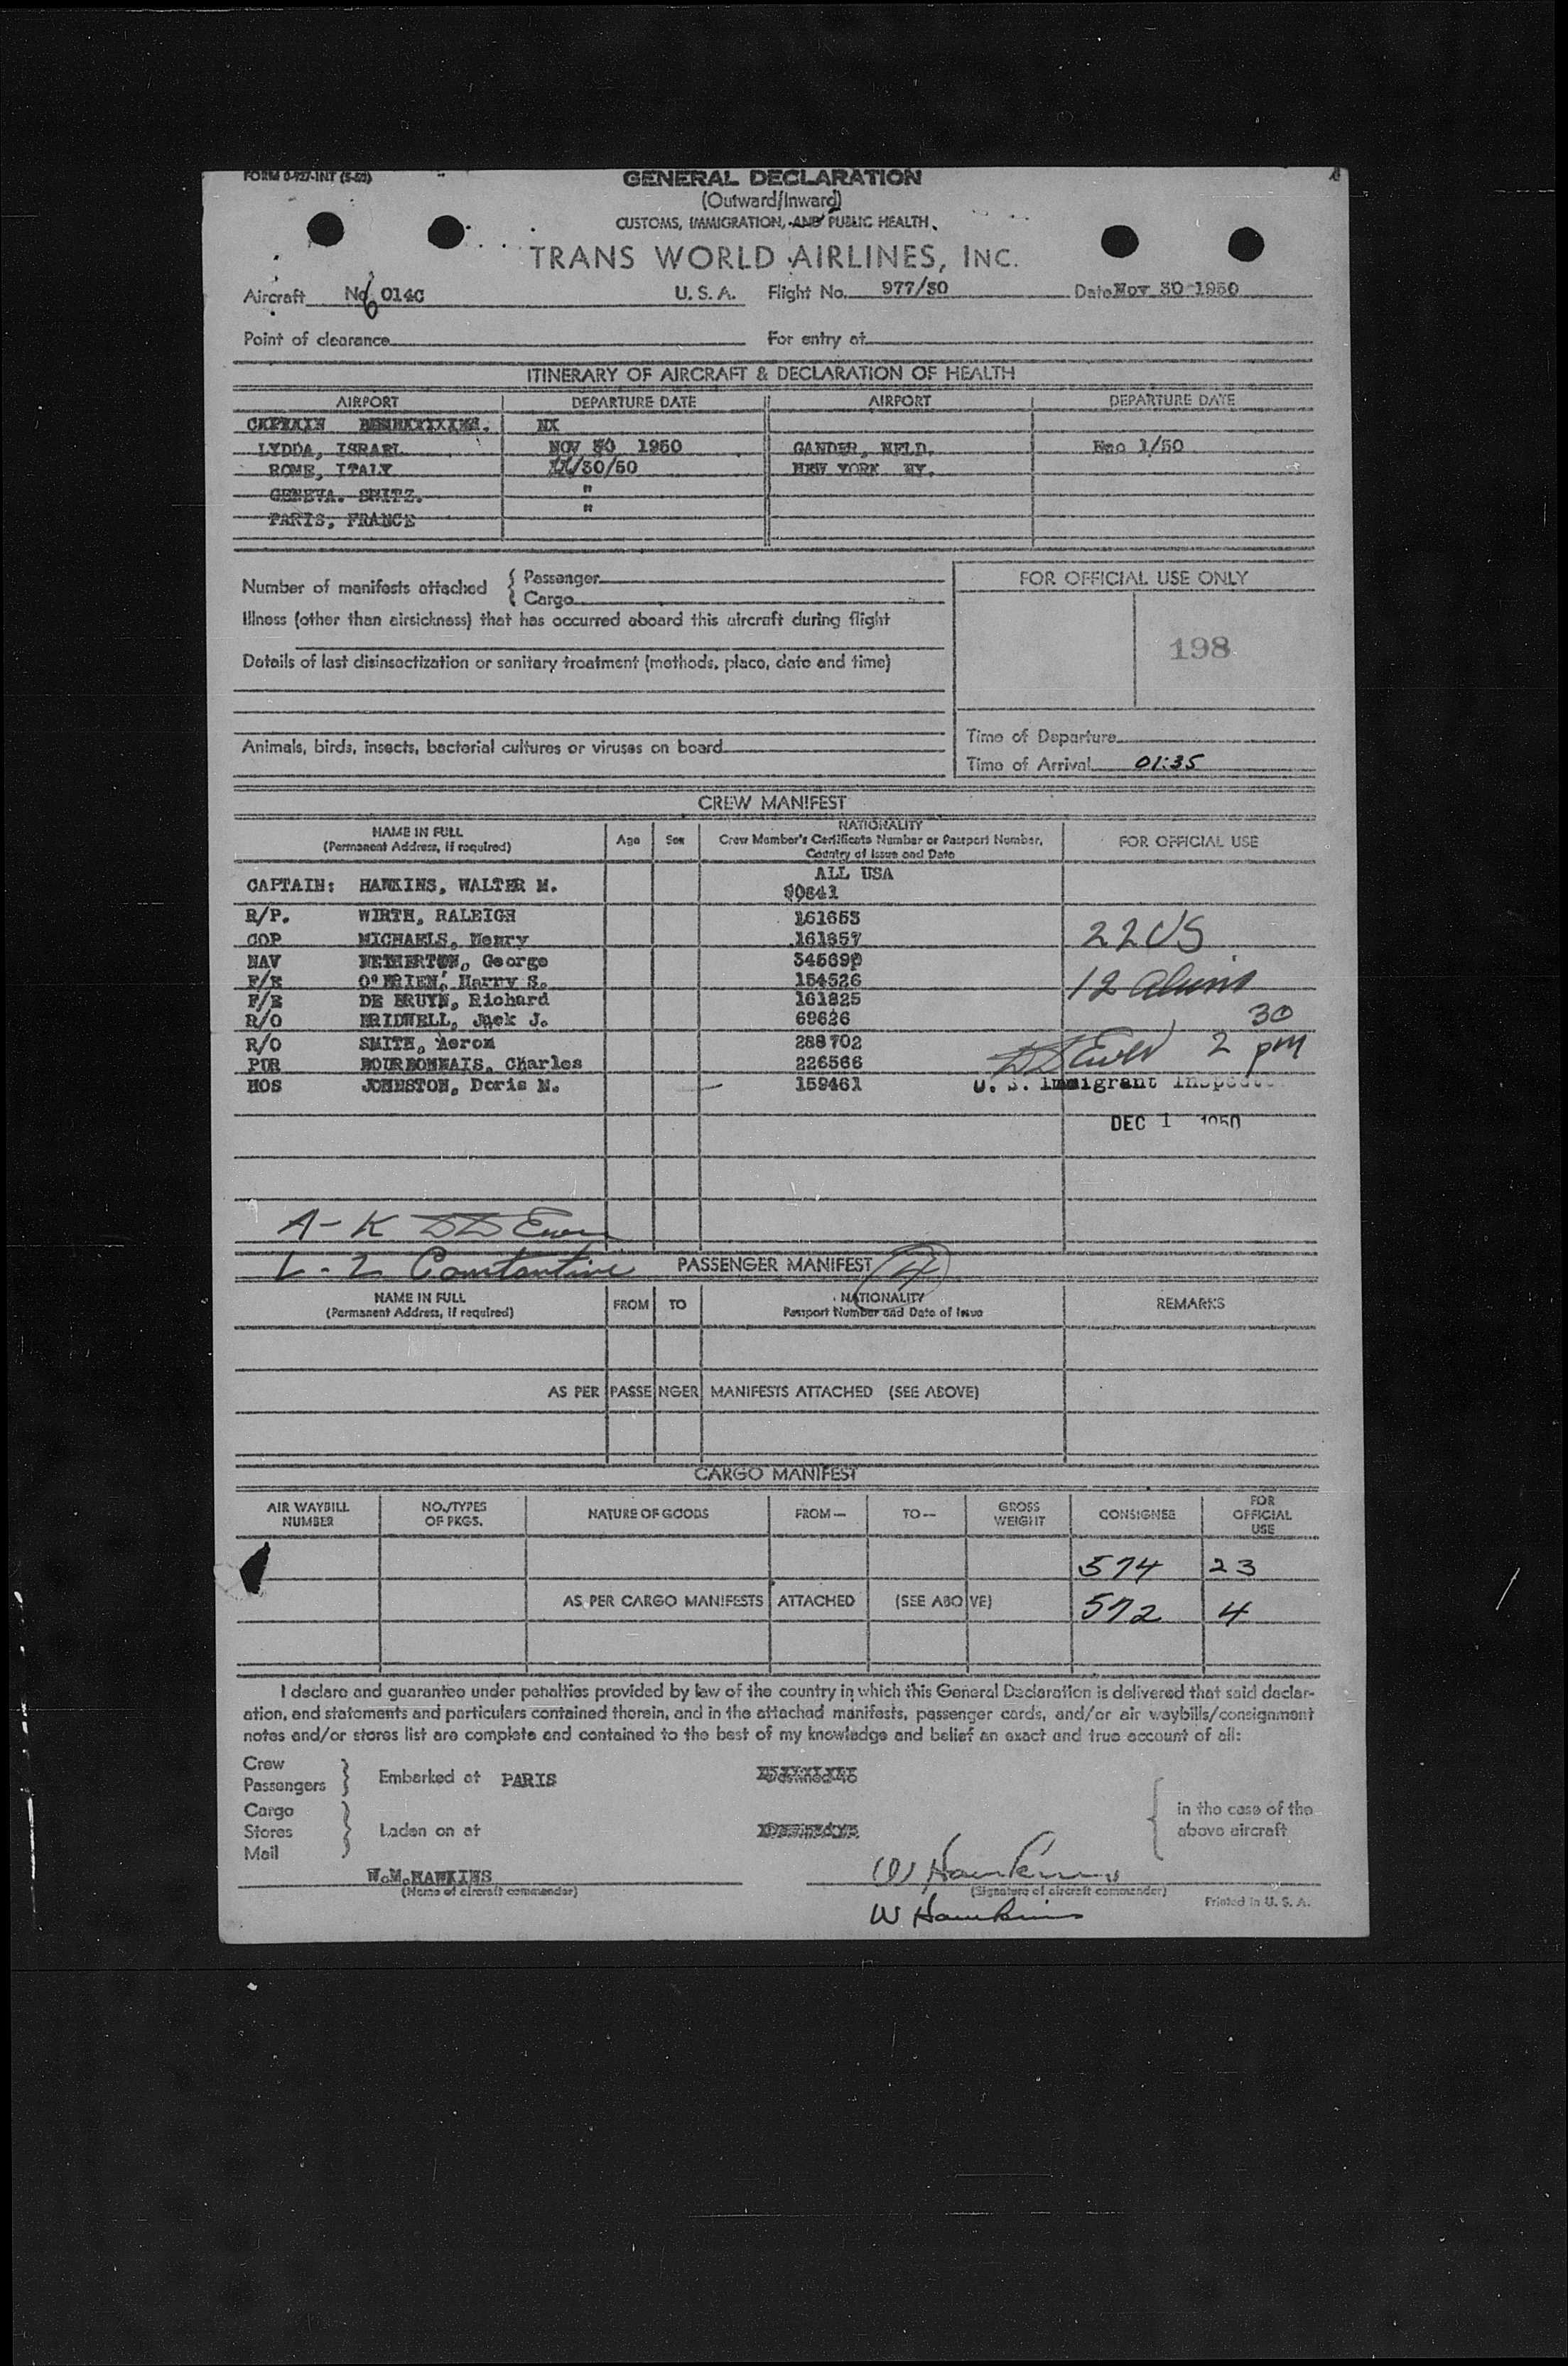 FORM 0-927-INT (5-50)
GENERAL DECLARATION
(Outward/Inward)
CUSTOMS, IMMIGRATION, AND PUBLIC HEALTH
TRANS WORLD AIRLINES, INC.
Aircraft N 6014C U. S. A. Flight No. 977/30 Date Nov 30 1950
Point of clearance For entry at
ITINERARY OF AIRCRAFT & DECLARATION OF HEALTH
AIRPORT DEPARTURE DATE AIRPORT DEPARTURE DATE
LYDDA, ISRAEL NOV 30 1950 GANDER, NFLD. Dec 1/50
ROME, ITALY 11/30/50 NEW YORK NY.
GENEVA. SWITZ. "
PARIS, FRANCE "
Number of manifests attached { Passenger
{ Cargo
FOR OFFICIAL USE ONLY
Illness (other than airsickness) that has occurred aboard this aircraft during flight
198
Details of last disinsectization or sanitary treatment (methods, place, date and time)
Time of Departure
Animals, birds, insects, bacterial cultures or viruses on board
Time of Arrival 01:35
CREW MANIFEST
NAME IN FULL
(Permanent Address, if required)
Age Sex
NATIONALITY
Crew Member's Certificate Number or Passport Number,
Country of Issue and Date
FOR OFFICIAL USE
ALL USA
CAPTAIN: HAWKINS, WALTER M. 90641
R/P. WIRTH, RALEIGH 161653
COP MICHAELS, Henry 161857 22 US
NAV NETHERTON, George 34569
F/E O'BRIEN, Harry S. 154526 12 Aliens
F/E DE BRUYN, Richard 161825
R/O BRIDWELL, Jack J. 69626 30
R/O SMITH, Aaron 288702 DD Ewen 2 pm
PUR BOURBONNAIS, Charles 226566
HOS JOHNSTON, Doris M. 159461 U. S. Immigrant Inspector
DEC 1 1950
A-K DD Ewen
L-Z Constantine
PASSENGER MANIFEST
NAME IN FULL
(Permanent Address, if required)
FROM TO
NATIONALITY
Passport Number and Date of Issue
REMARKS
AS PER PASSENGER MANIFESTS ATTACHED (SEE ABOVE)
CARGO MANIFEST
AIR WAYBILL
NUMBER
NO./TYPES
OF PKGS.
NATURE OF GOODS FROM— TO—
GROSS
WEIGHT
CONSIGNEE
FOR
OFFICIAL
USE
574 23
AS PER CARGO MANIFESTS ATTACHED (SEE ABOVE) 572 4
I declare and guarantee under penalties provided by law of the country in which this General Declaration is delivered that said declar-
ation, and statements and particulars contained therein, and in the attached manifests, passenger cards, and/or air waybills/consignment
notes and/or stores list are complete and contained to the best of my knowledge and belief an exact and true account of all:
Crew
Passengers } Embarked at PARIS
Cargo
Stores } Laden on at
Mail
in the case of the
above aircraft
W.M.HAWKINS W Hawkins
(Name of aircraft commander) (Signature of aircraft commander)
Printed in U. S. A.
W Hawkins